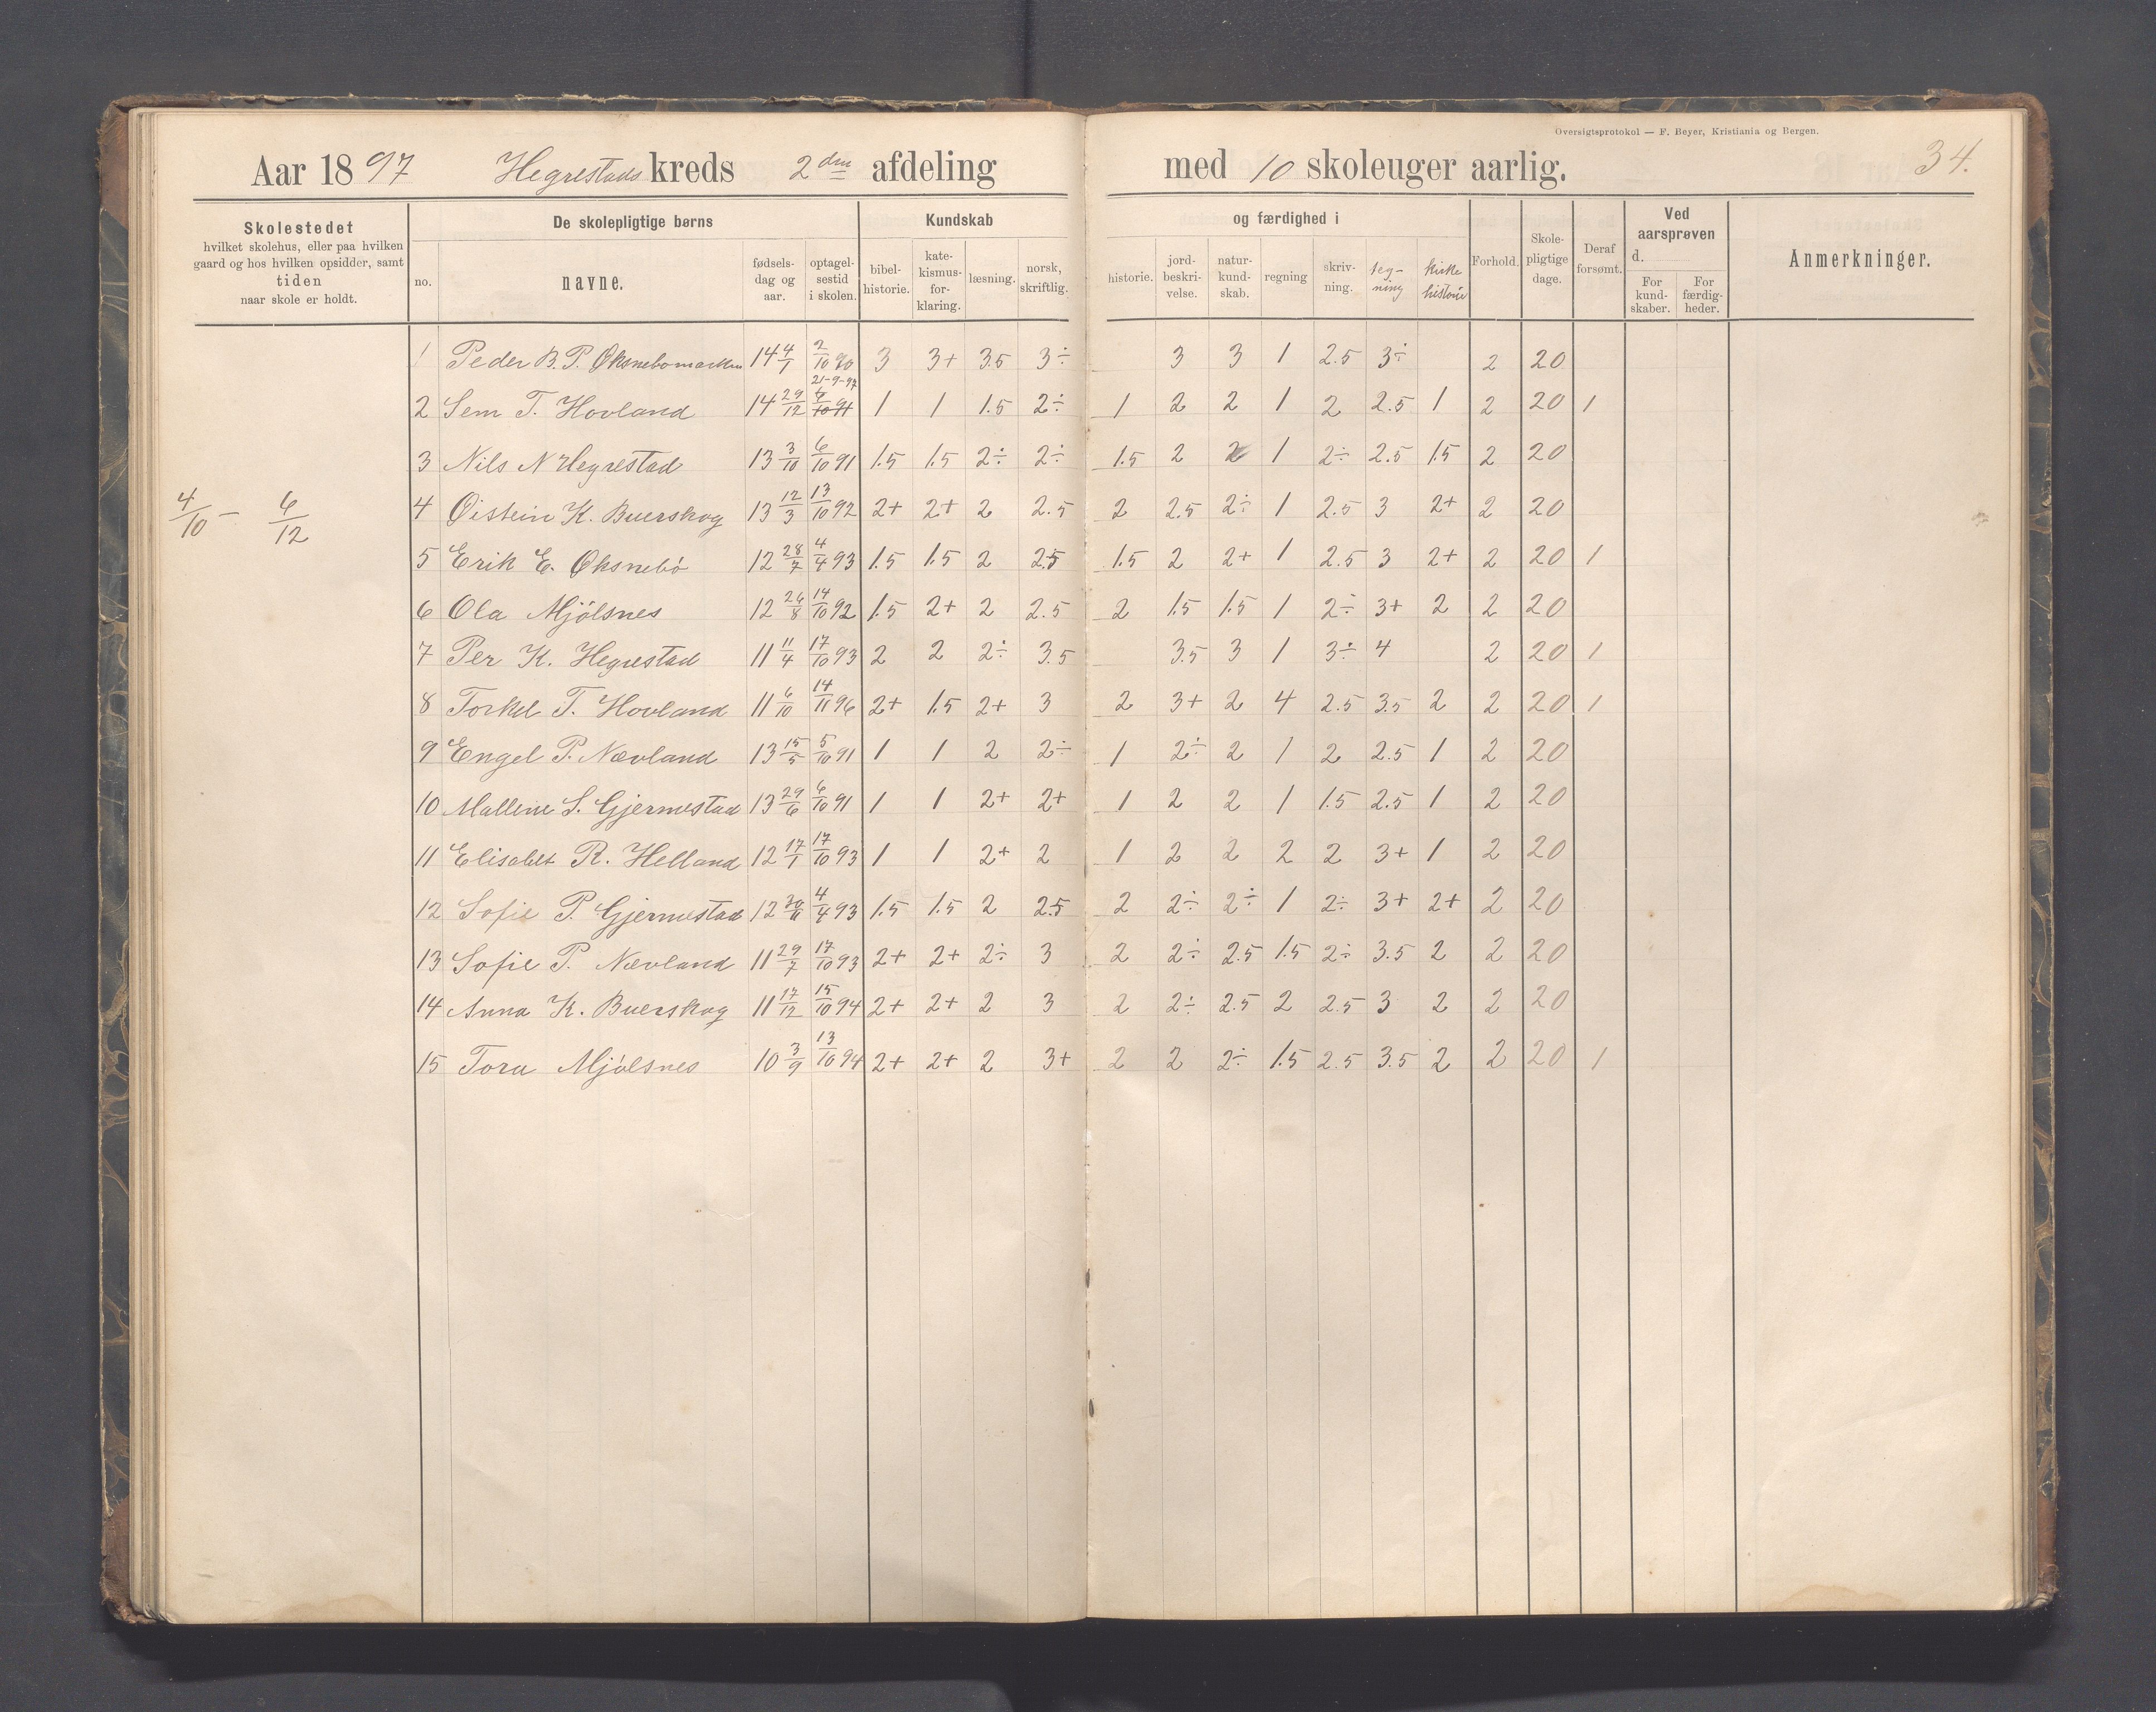 Oversigtsprotokol — F. Beyer, Kristiania og Bergen.
34.
Aar 1897 Hegrestads kreds 2den afdeling med 10 skoleuger aarlig.
Skolestedet
hvilket skolehus, eller paa hvilken
gaard og hos hvilken opsidder, samt
tiden
naar skole er holdt.
De skolepligtige børns
no. navne. fødsels-dag og aar. optagel-sestid i skolen.
Kundskab og færdighed i
bibel-historie. kate-kismus-for-klaring. læsning. norsk, skriftlig. historie. jord-beskri-velse. natur-kund-skab. regning skriv-ning. teg-ning kirke historie
Forhold. Skole-pligtige dage. Deraf forsømt.
Ved aarsprøven d.
For kund-skaber. For færdig-heder.
Anmerkninger.
4/10 – 6/12
1 Peder B. P. Øksnebomarken 14 4/1 2/10 90 3 3+ 3.5 3÷ 3 3 1 2.5 3÷ 2 20
21-9-97
2 Sem T. Hovland 14 29/12 6/10 91 1 1 1.5 2÷ 1 2 2 1 2 2.5 1 2 20 1
3 Nils N Hegrestad 13 3/10 6/10 91 1.5 1.5 2÷ 2÷ 1.5 2 2 1 2÷ 2.5 1.5 2 20
4 Øistein K. Buerskog 13 12/3 13/10 92 2+ 2+ 2 2.5 2 2.5 2÷ 1 2.5 3 2+ 2 20
5 Erik E. Øksnebö 12 28/7 4/4 93 1.5 1.5 2 2.5 1.5 2 2+ 1 2.5 3 2+ 2 20 1
6 Ola Mjölsnes 12 26/8 14/10 92 1.5 2+ 2 2.5 2 1.5 1.5 1 2÷ 3+ 2 2 20
7 Per K. Hegrestad 11 11/4 17/10 93 2 2 2÷ 3.5 3.5 3 1 3÷ 4 2 20 1
8 Torkel T. Hovland 11 6/10 14/11 96 2+ 1.5 2+ 3 2 3+ 2 4 2.5 3.5 2 2 20 1
9 Engel P. Nævland 13 15/5 5/10 91 1 1 2 2÷ 1 2÷ 2 1 2 2.5 1 2 20
10 Malline S. Gjermestad 13 29/6 6/10 91 1 1 2+ 2+ 1 2 2 1 1.5 2.5 1 2 20
11 Elisabet R. Helland 12 17/1 17/10 93 1 1 2+ 2 1 2 2 2 2 3+ 1 2 20
12 Sofie P. Gjermestad 12 30/11 4/4 93 1.5 1.5 2 2.5 2 2÷ 2÷ 1 2÷ 3+ 2+ 2 20
13 Sofie P. Nævland 11 29/7 17/10 93 2+ 2+ 2÷ 3 2 2÷ 2.5 1.5 2÷ 3.5 2 2 20
14 Anna K. Buerskog 11 17/12 15/10 94 2+ 2+ 2 3 2 2÷ 2.5 2 2.5 3 2 2 20
15 Tora Mjölsnes 10 3/9 13/10 94 2+ 2+ 2 3+ 2 2 2÷ 1.5 2.5 3.5 2 2 20 1